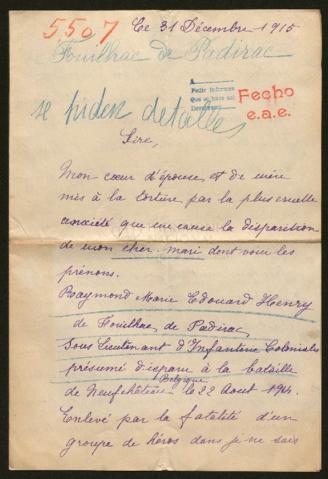 5507
Ce 31 Décembre 1915
Fouilhac de Padirac
A
Pedir informes
Fecho
e.a.e.
se piden detalles
Sire,
Mon cœur d'épouse et de mère
mis à la torture par la plus cruelle
anxiété que me cause la disparition
de mon cher mari dont voici les
prénoms.
Raymond Marie Edouard Henry
de Fouilhac de Padirac
Sous Lieutenant d'Infanterie Coloniale
présumé disparu à la bataille
Belgique
de Neufchâteau le 22 Août 1914.
Enlevé par la fatalité d'un
groupe de héros dans je ne sais